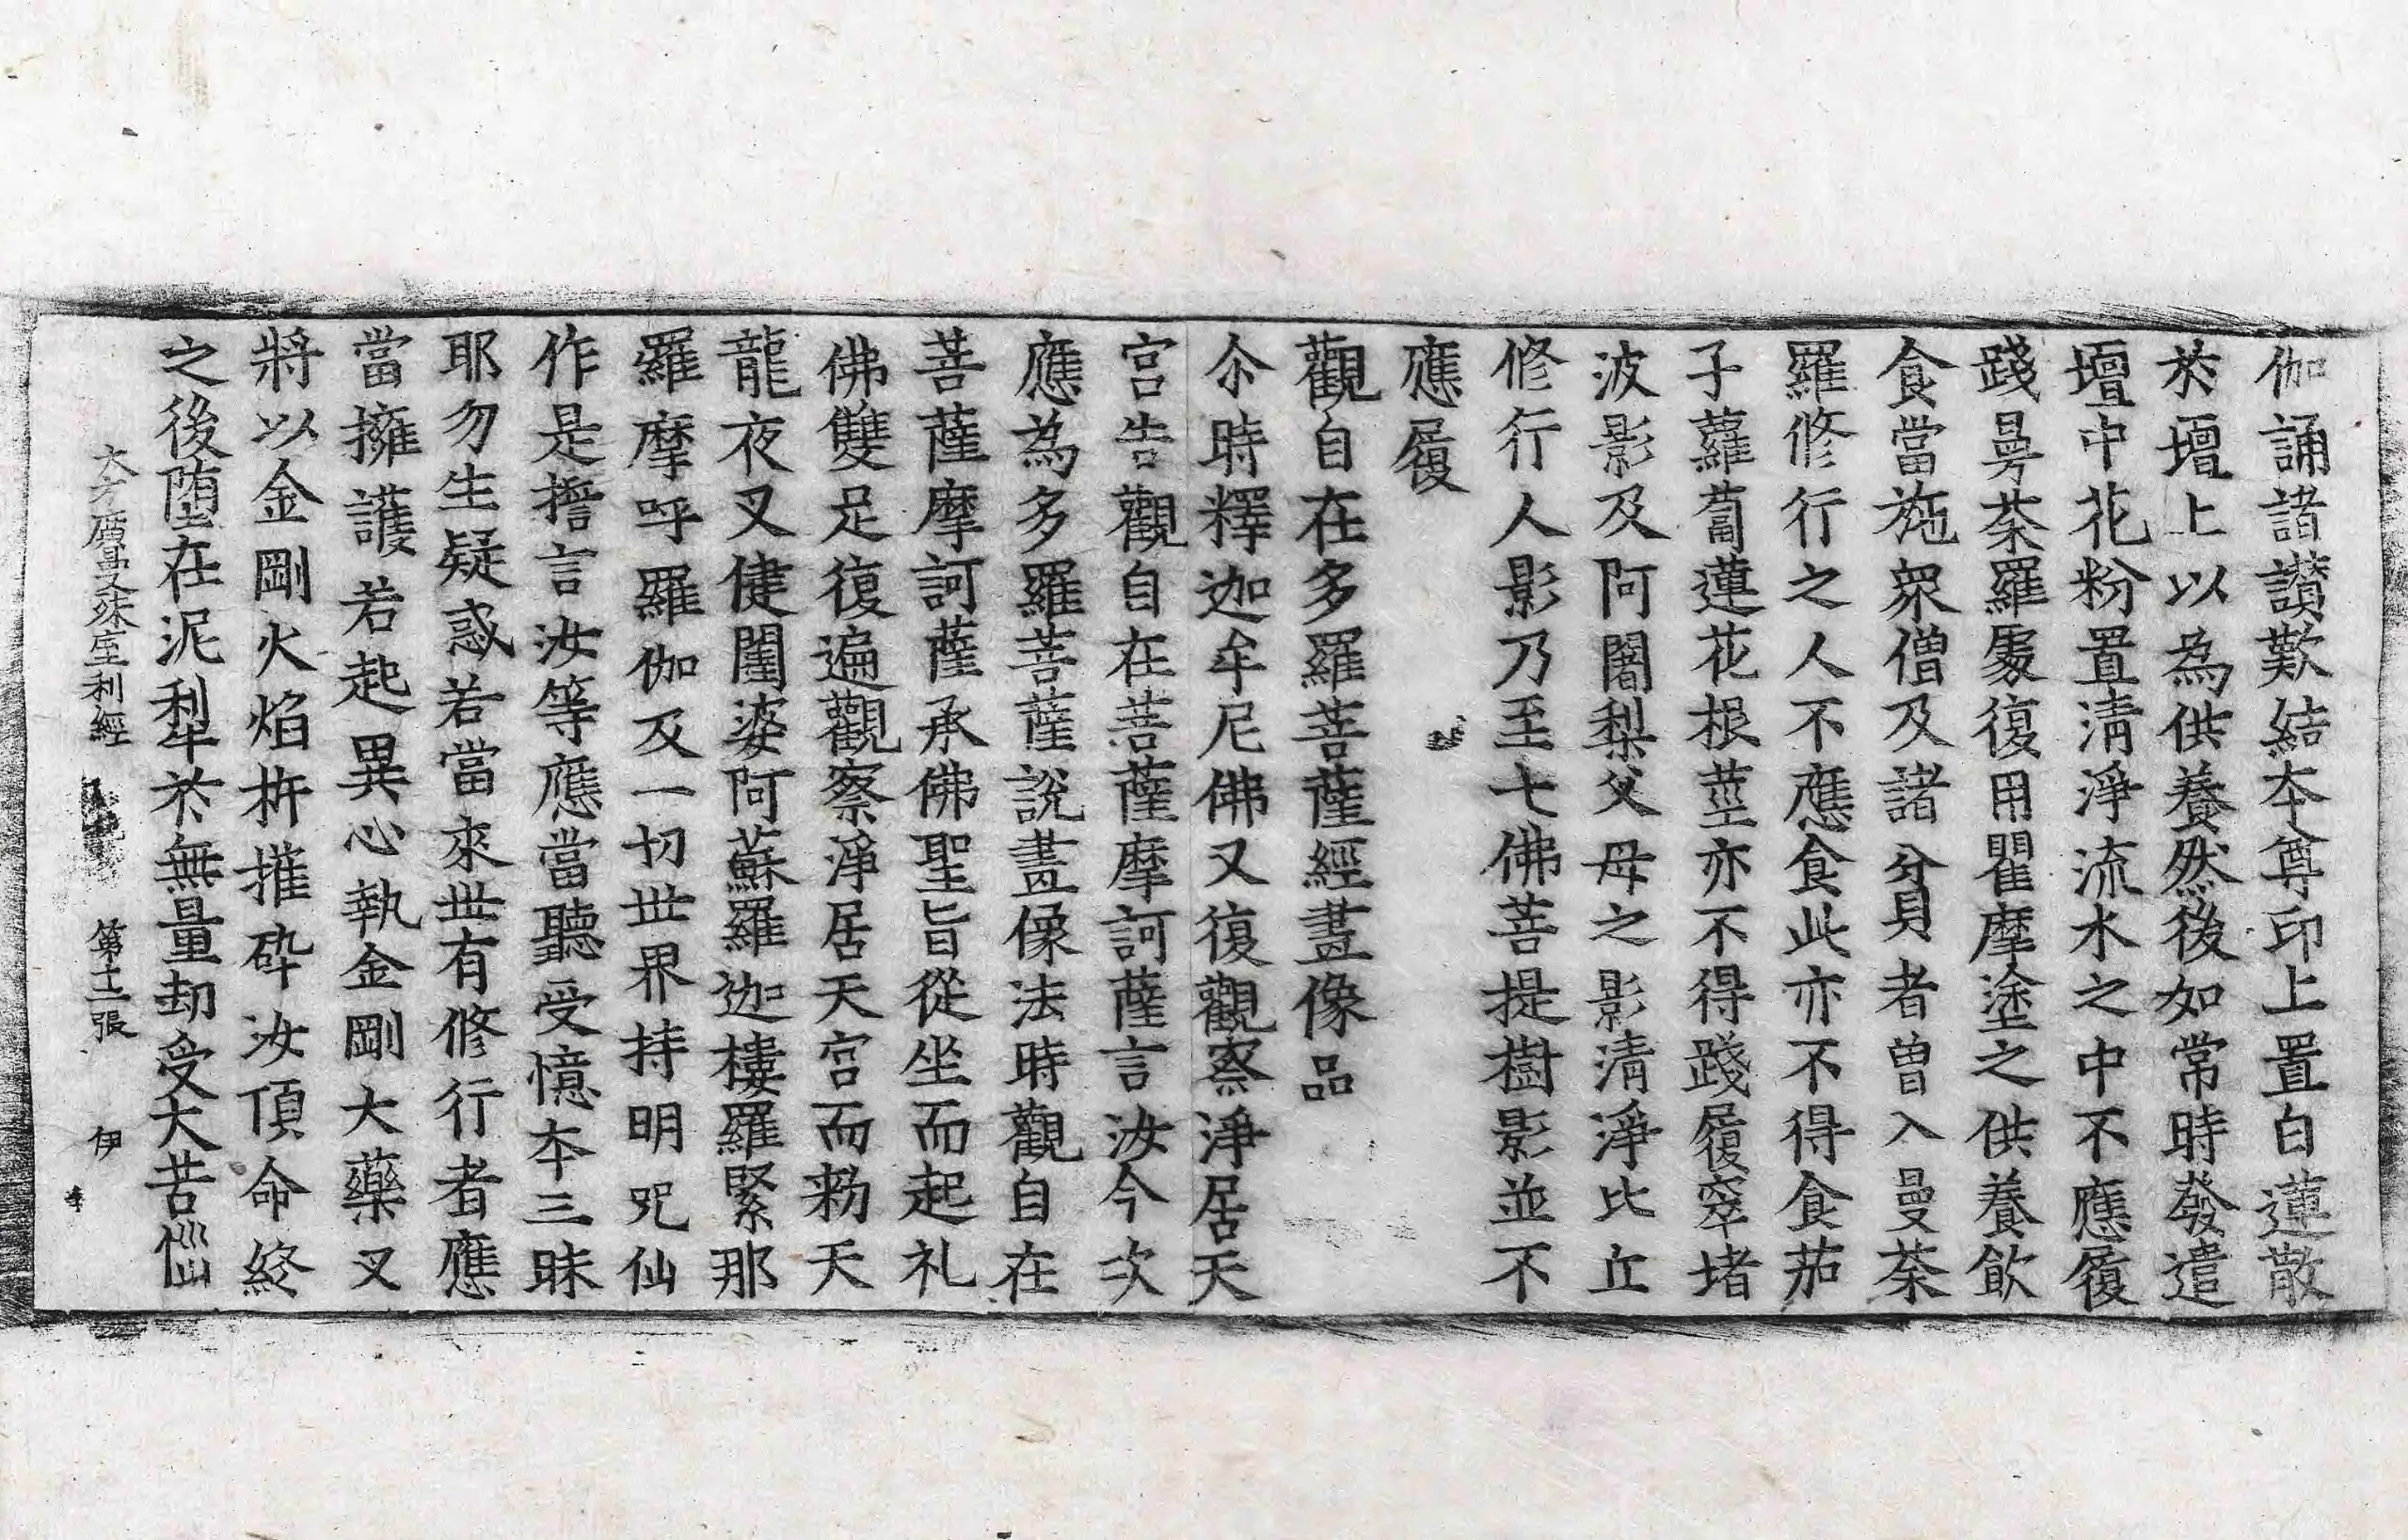 伽誦諸讃歎結本尊印上置白蓮散
於壇上以為供養然後如常時發遣
壇中花粉置清淨流水之中不應履
踐曼荼羅處復用瞿摩塗之供養飲
食當施衆僧及諸貧者曽入曼荼
羅修行之人不應食此亦不得食茄
子蘿蔔蓮花根莖亦不得踐履窣堵
波影及阿闍梨父母之影清淨比丘
修行人影乃至七佛菩提樹影並不
應履
觀自在多羅菩薩經畫像品
尒時釋迦牟尼佛又復觀察淨居天
宮告觀自在菩薩摩訶薩言汝今次
應為多羅菩薩說畫像法時觀自在
菩薩摩訶薩承佛聖旨從坐而起礼
佛雙足復遍觀察淨居天宮而勑天
龍夜叉健闥婆阿蘇羅迦樓羅緊那
羅摩呼羅伽及一切世界持明咒仙
作是擔言汝等應當聽受憶本三昧
耶勿生疑惑若當來世有修行者應
當擁護若起異心執金剛大藥叉
將以金剛火焰杵摧碎汝頂命終
之後堕在泥犁於無量劫受大苦惱
大方廣曼殊室利經 第十二張 伊